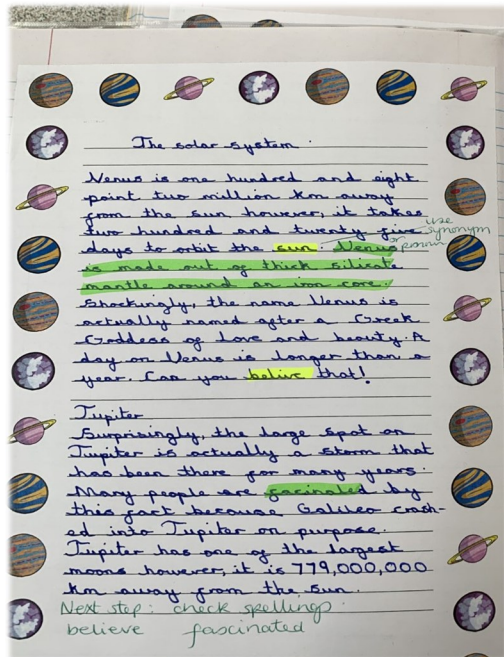 The solar system.
Venus is one hundred and eight
point two million km away
from the sun however, it takes
two hundred and twenty five
use synonym or pronoun
days to orbit the sun. Venus
is made out of thick silicate
mantle around an iron core.
Shockingly, the name Venus is
actually named after a Greek
Goddess of Love and beauty. A
day on Venus is longer than a
year. Can you belive that!
Jupiter
Surprisingly, the large spot on
Jupiter is actually a storm that
has been there for many years.
Many people are facinated by
this fact because Galileo crash-
ed into Jupiter on purpose.
Jupiter has one of the largest
moons however, it is 779,000,000
km away from the sun.
Next step: check spellings.
believe fascinated